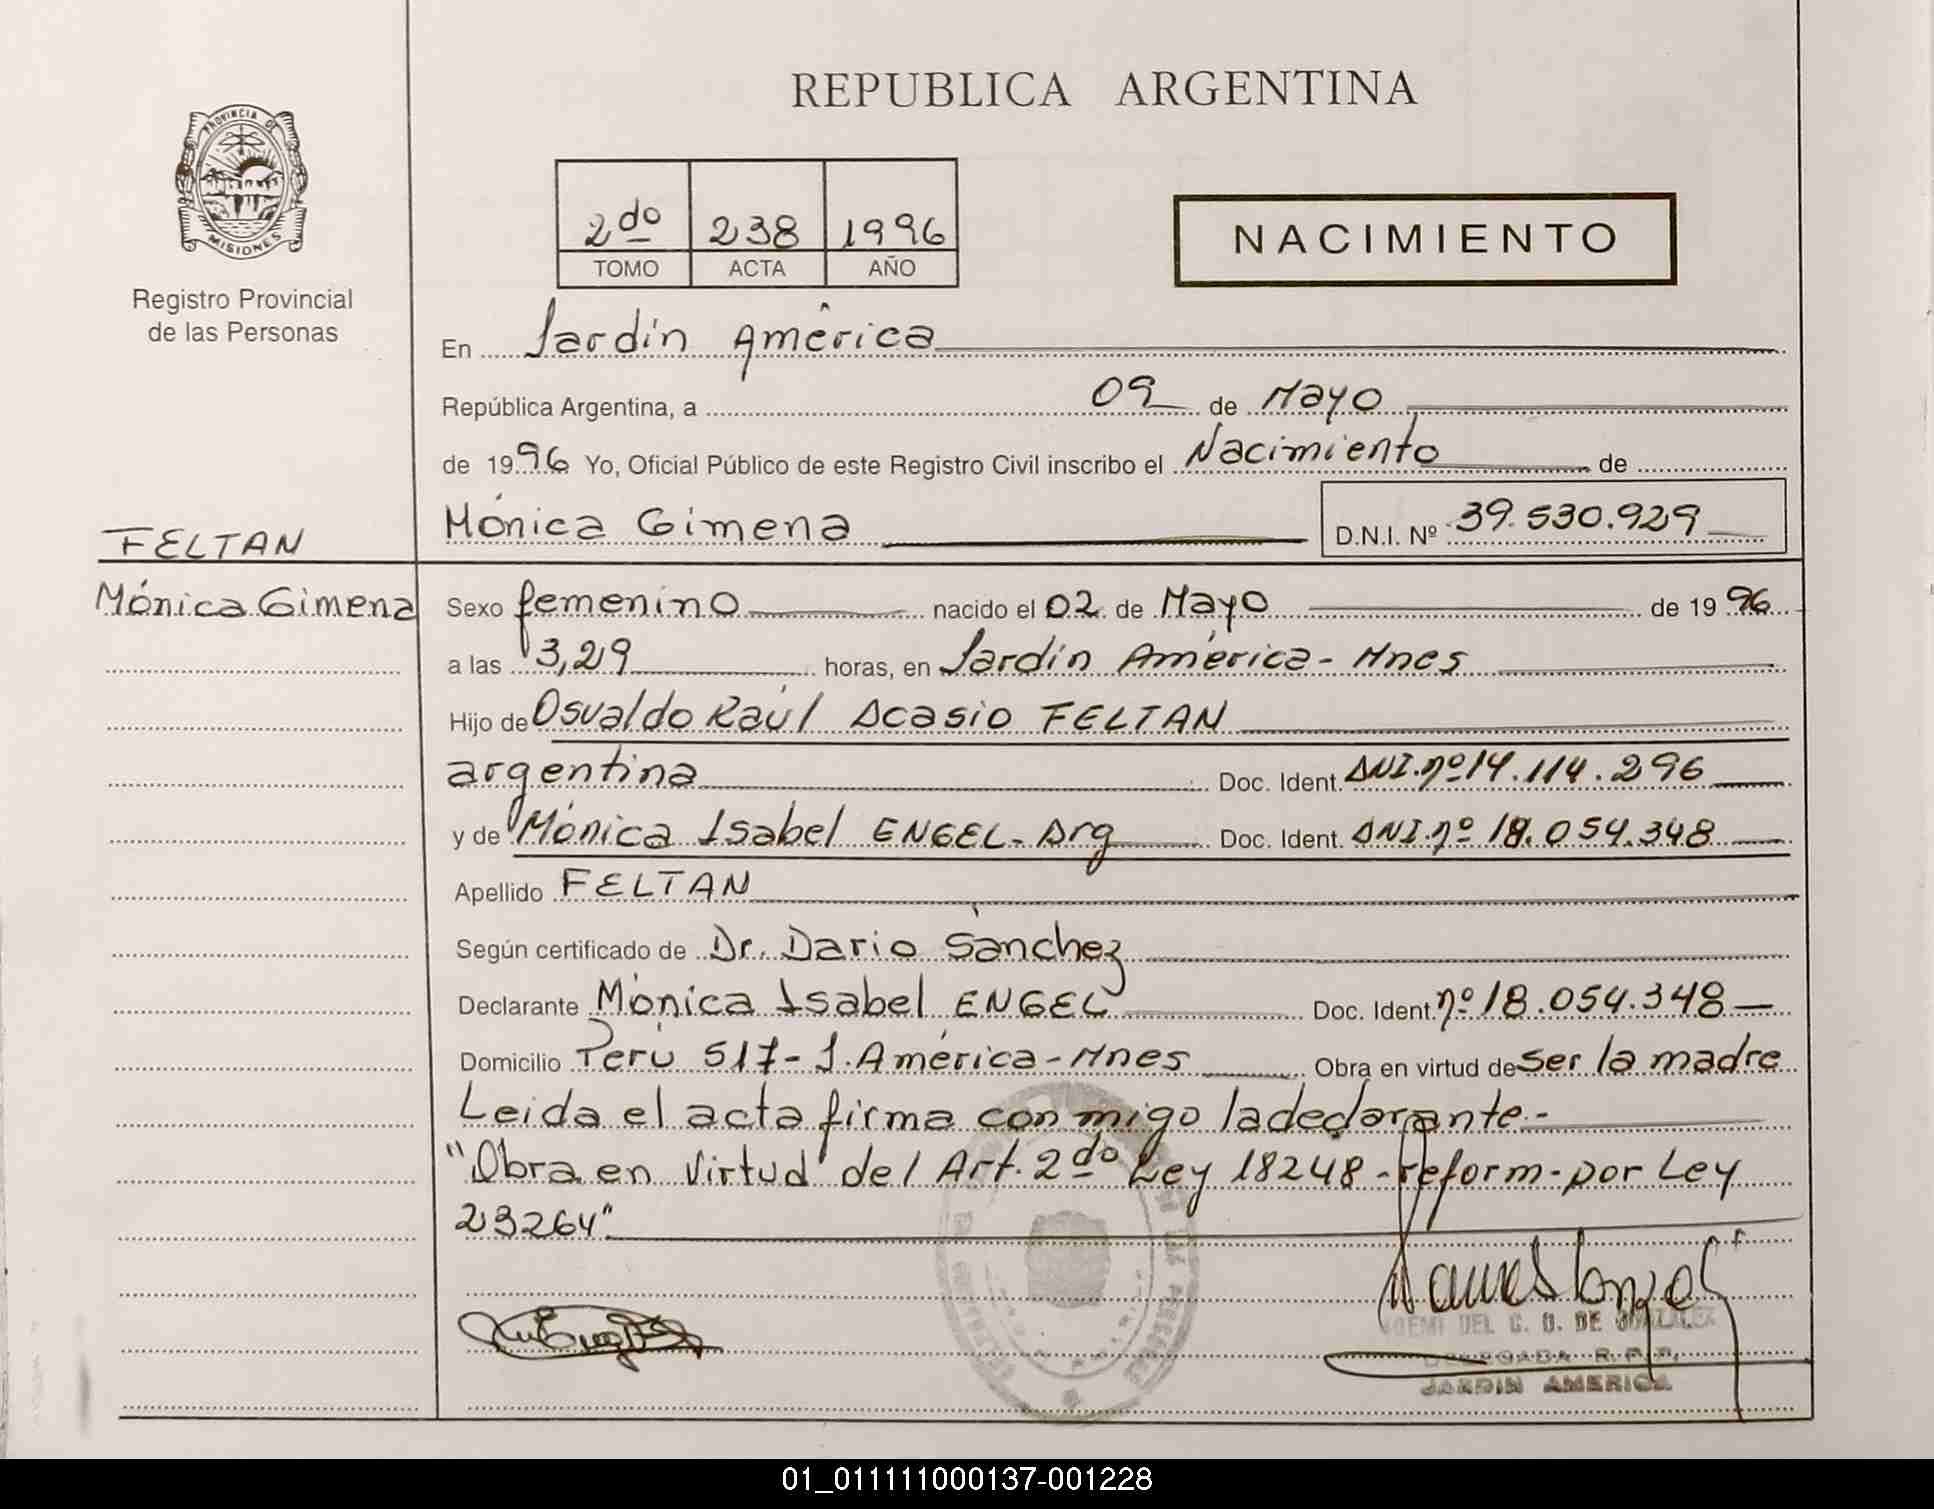 REPUBLICA ARGENTINA
PROVINCIA DE
MISIONES
Registro Provincial
de las Personas
2do 238 1996
TOMO ACTA AÑO
NACIMIENTO
En Jardín América
República Argentina, a 09 de Mayo
de 1996 Yo, Oficial Público de este Registro Civil inscribo el Nacimiento de
Mónica Gimena D.N.I. Nº 39.530.929
FELTAN
Mónica Gimena
Sexo femenino nacido el 02 de Mayo de 1996
a las 3,29 horas, en Jardín América - Mnes
Hijo de Osvaldo Raúl Acasio FELTAN
argentina Doc. Ident. DNI. nº 14.114.296
y de Mónica Isabel ENGEL - Arg Doc. Ident. DNI. nº 18.054.348
Apellido FELTAN
Según certificado de Dr. Dario Sánchez
Declarante Mónica Isabel ENGEL Doc. Ident. nº 18.054.348
Domicilio Perú 517 - J. América - Mnes Obra en virtud de ser la madre
Leida el acta firma con migo la declarante.-
"Obra en virtud del Art. 2do Ley 18248 - reform - por Ley
23264"
DEL C. D. DE GONZALEZ
DELEGADA R.P.P.
JARDIN AMERICA
01_011111000137-001228